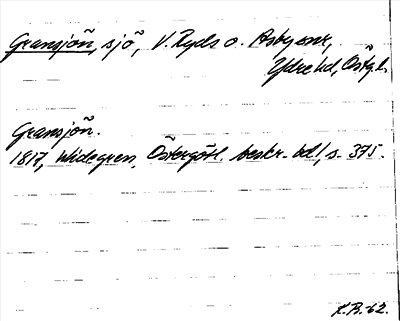 Gransjön, sjö, V. Ryds o. Asby snr,
Ydre hd, Östgl.
Gransjön.
1817, Widegren, Östergötl. beskr. bd 1, s. 375.
K.B. -62.